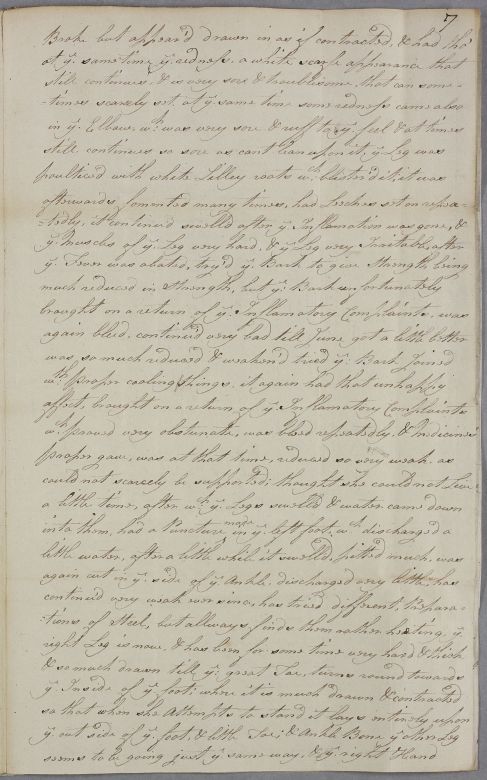 7
Broke but appear'd drawn in as if contracted, & had tho'
at ye. same time ye. redness, a white scurfe appearance that
still continues & is very sore & troublesome that can some=
=times scarcely set. at ye. same time some redness came also
in ye. Elbow, wh. was very sore & ruff to ye. feel & at times
still continues so sore as cant lean upon it, ye. Leg was
poulticed with white Lilley roots wh. blister'd it, it was
afterwards fomented many times, had Leeches set on repea=
=tedly, it continued swell'd after ye. Inflamation was gone, &
ye. Muscles of ye. Leg very hard, & ye. Leg very Irritable, after
ye. Fever was abated, try'd ye. Bark to give Strength being
much reduced in Strength, but ye. Bark unfortunately
brought on a return of ye. Inflamatory Complaints, was
again bleed, continued very bad till June got a little better
was so much reduced & weaken'd tried ye. Bark joined
wth. proper cooling things, it again had that unhappy
affect, brought on a return of ye. Inflamatory Complaints
wh. proved very obstinate, was bleed repeatedly, & Medicines
proper gave, was at that time, reduced so very weak as
could not scarcely be supported; thought she could not Live
a little time, after wh. ye. Legs swelld & water came down
into them, had a Puncture made in ye. left foot, wh. discharged a
little water, after a little while it swelld, pitted much, was
again cut in ye. side of ye. Ankle, discharged very little, has
continued very weak ever since, has tried different, Prepara=
=tions of Steel, but allways finds them rather heating, ye.
right Leg is now, & has been for some time very hard & thick
& so much drawn till ye. great Toe, turns round towards
ye. Inside of ye. foot, where it is much drawn & contracted
so that when she Attempts to stand it lays entirely upon
ye. out side of ye. foot, & little Toe; & Ankle Bone ye. other Leg
seems to be going just ye. same way, & ye. right Hand